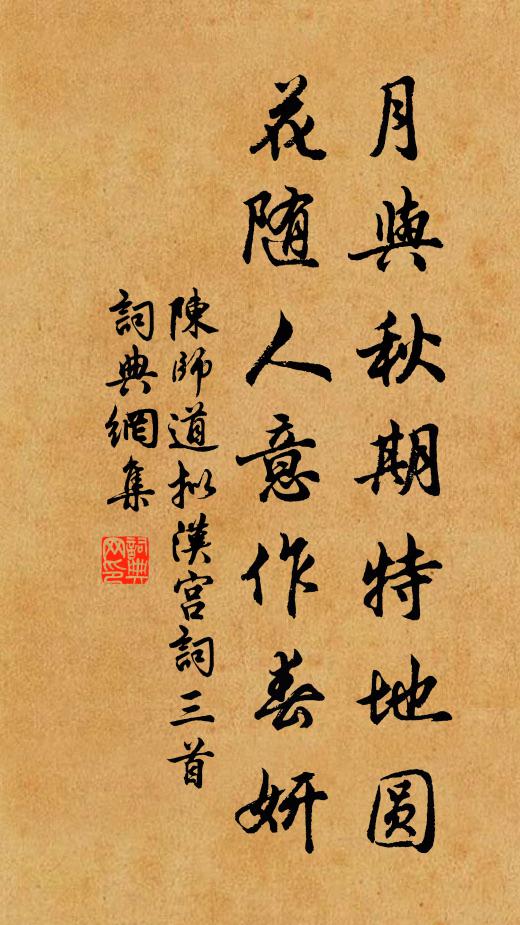 月與秋期特地圆
花随人意作春妍
陳師道拟漢宫詞三首
詞典網集
詞典
网印